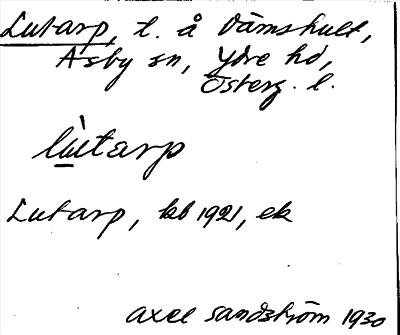 Lutarp, t. å Dämshult,
Asby sn, Ydre hd,
Österg. l.
lùtarp
Lutarp, kb 1921, ek
Axel Sandström 1930